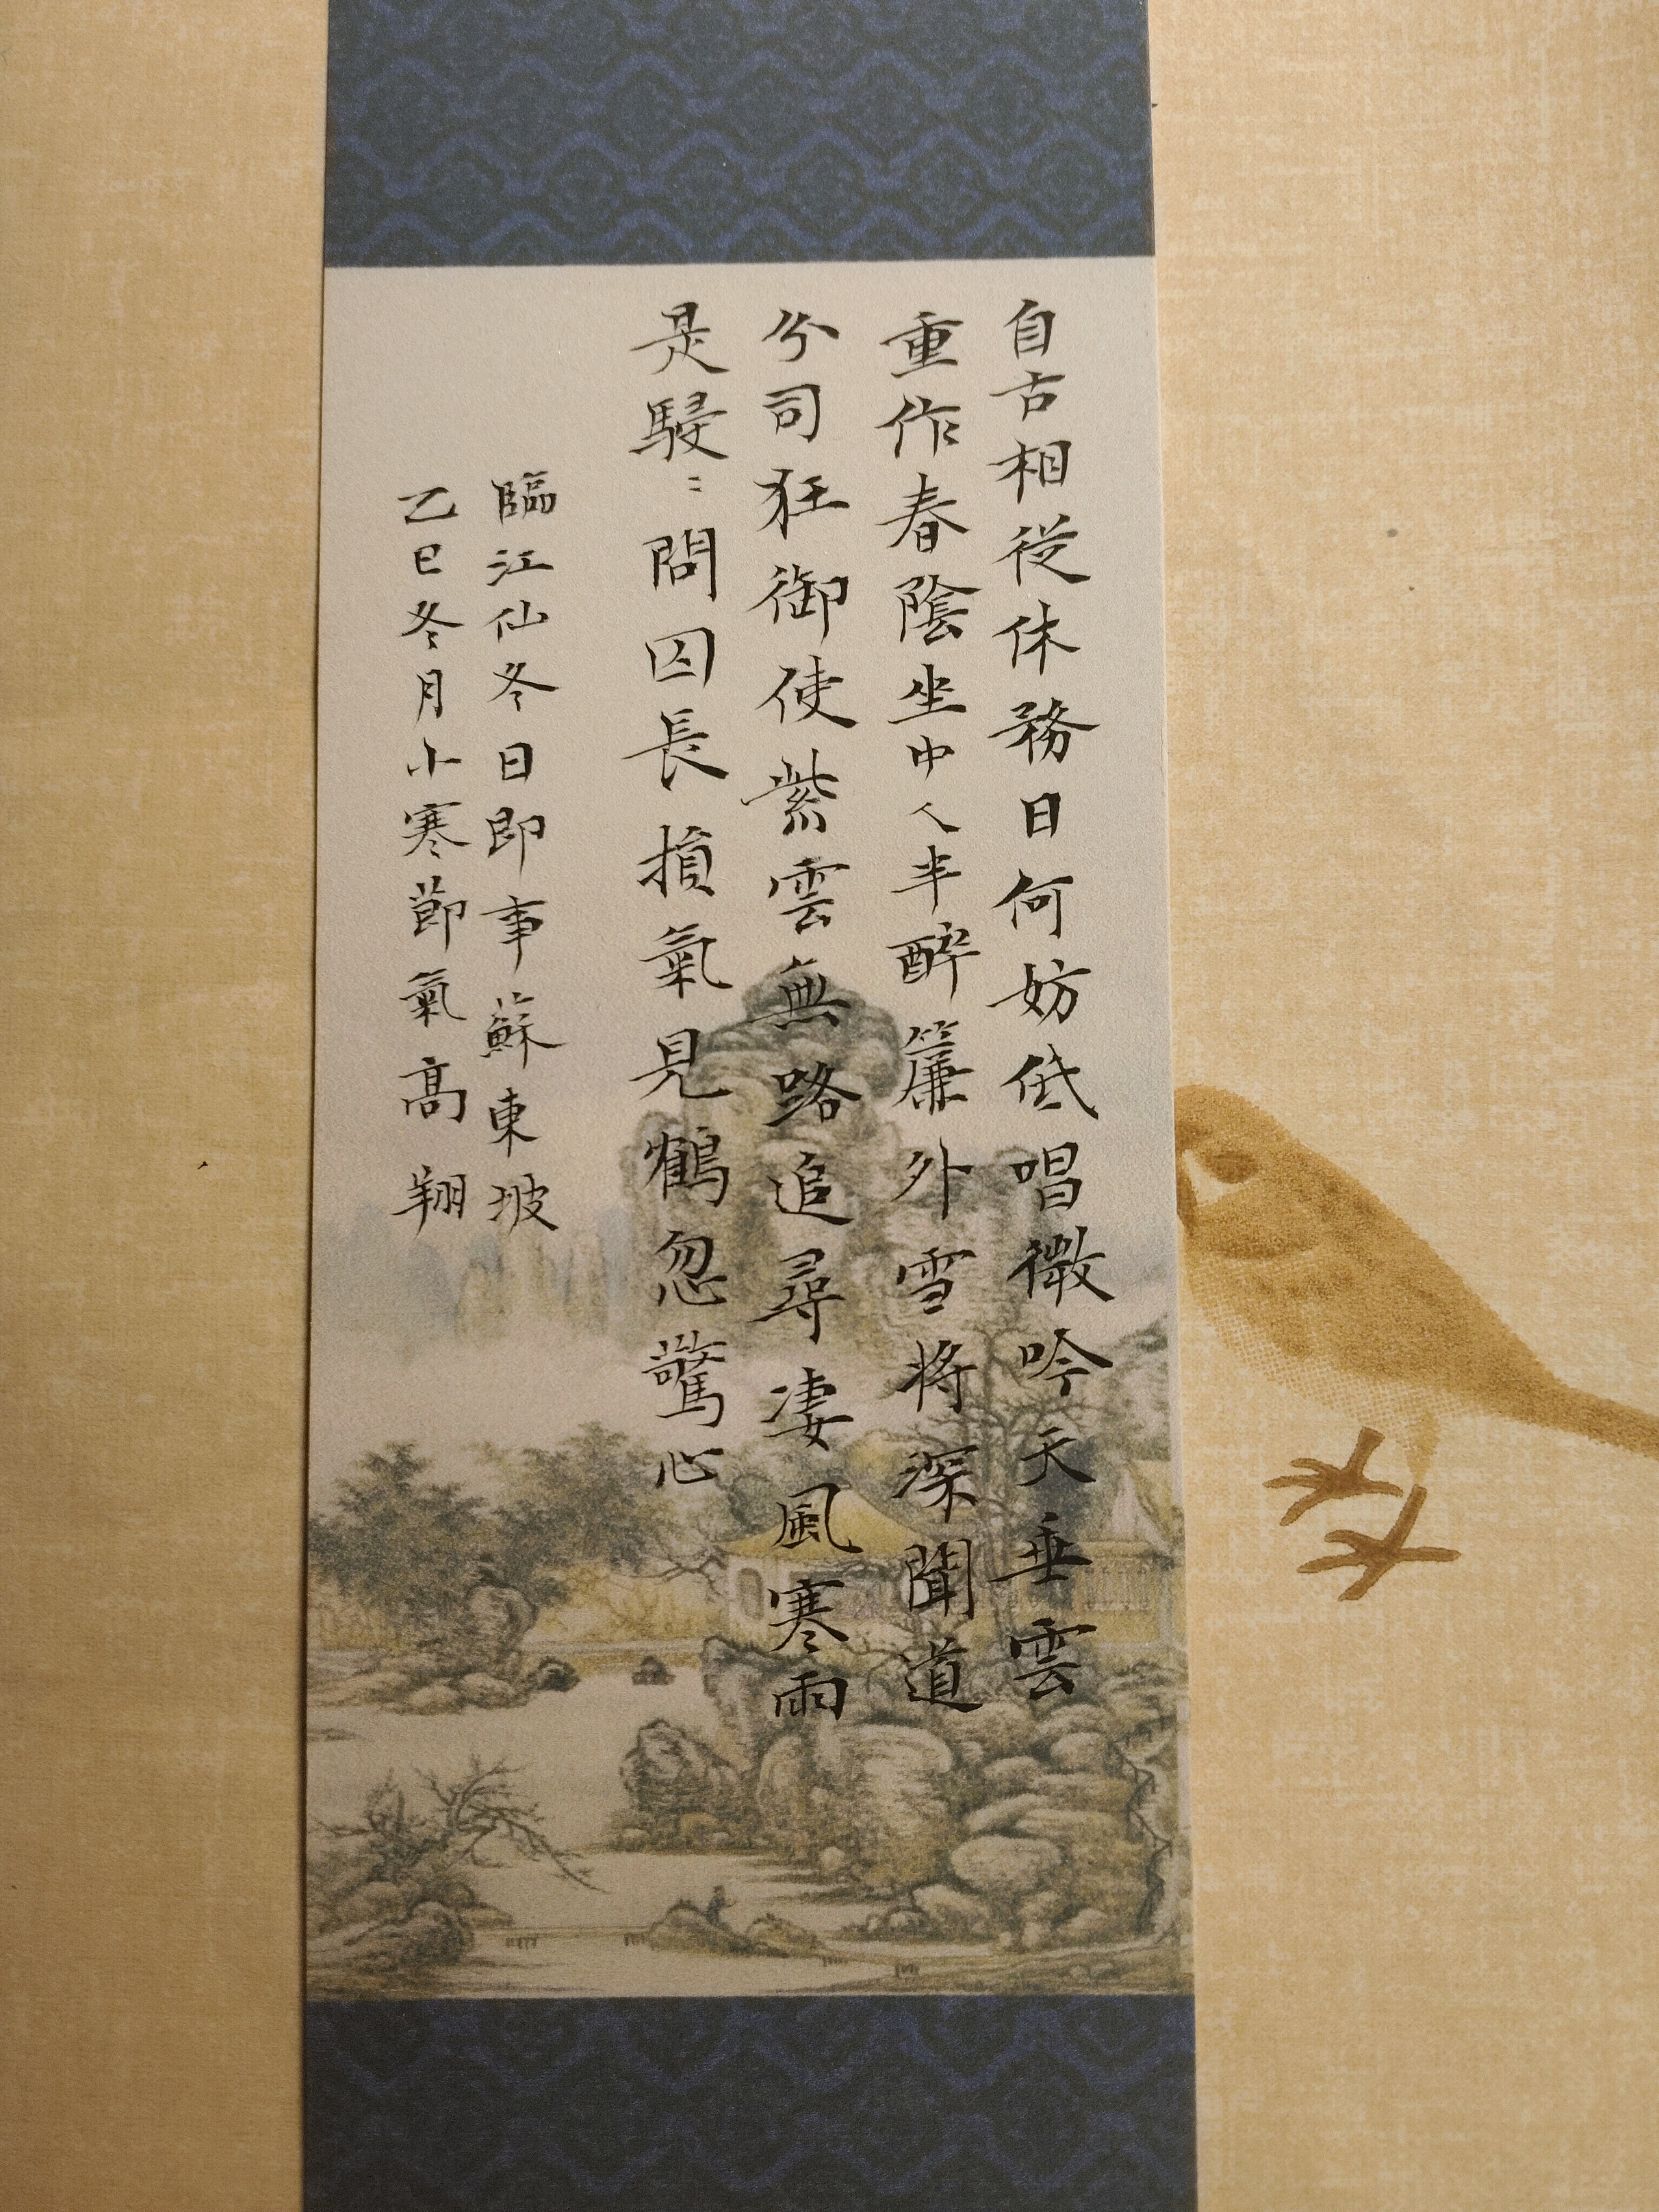 自古相從休務日何妨低唱微吟天垂雲
重作春陰坐中人半醉簾外雪將深聞道
分司狂御使紫雲無路追尋凄風寒雨
是駸〻問囚長損氣見鶴忽驚心
臨江仙冬日即事蘇東坡
乙巳冬月小寒節氣高翔